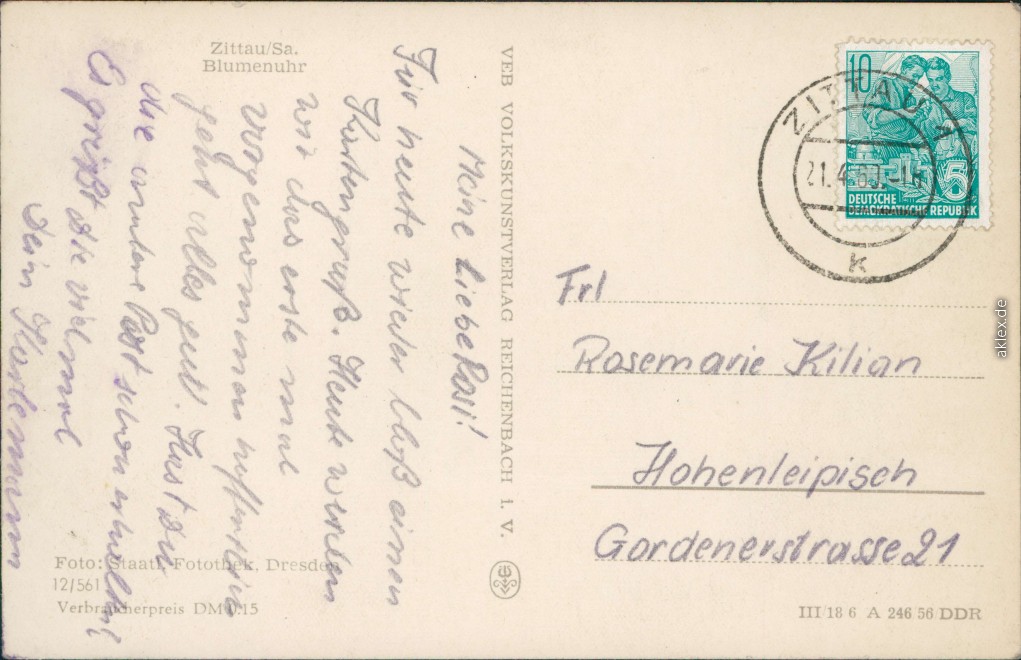 Zittau/Sa.
Blumenuhr
Meine liebe Rosi!
Für heute wieder bloß einen
Kartengruß. Heute werden
wir das erste mal
vorgenommen hoffentlich
geht alles gut. Hast du
die andere Post schon erhalten?
Es grüßt die viel mal
Dein
VEB VOLKSKUNSTVERLAG REICHENBACH i. V.
Foto: Staatl. Fotothek, Dresden
12/561
Verbraucherpreis DM 0.15
10
5
DEUTSCHE
DEMOKRATISCHE REPUBLIK
ZITTAU 1
21.4.60.
k
Frl
Rosemarie Kilian
Hohenleipisch
Gordenerstrasse 21
III 18 6 A 246 56 DDR
aklex.de